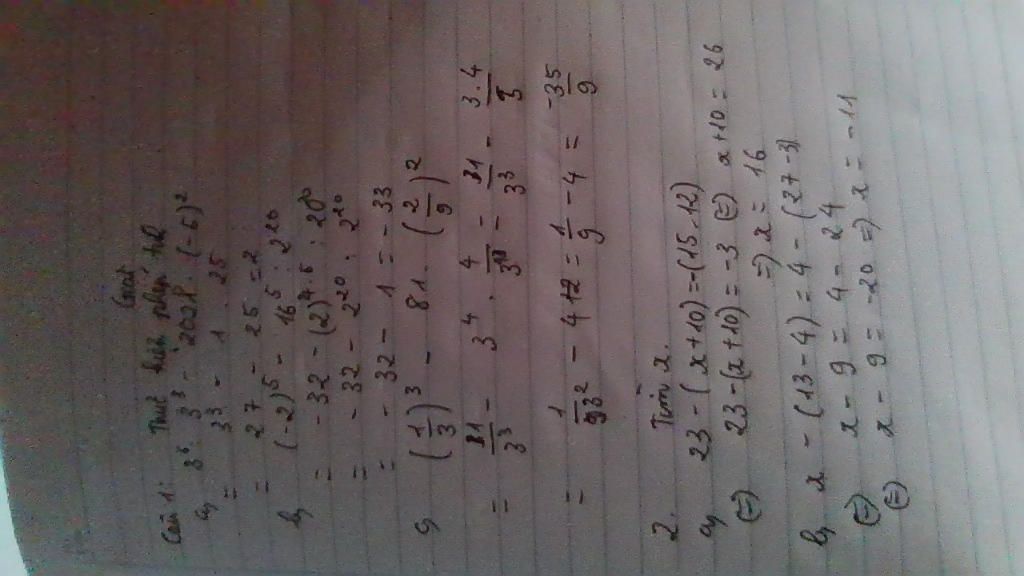 Giải
Câu 1: Thực hiện phép tính
a, 3⁶ : 3³ - 2021⁰ . (-5)²
= 3³ - 1 . 25
= 27 - 25 = 2
b, (-2)5 - 16⁵ : 2²⁰
= -32 - (2)⁴·⁵ : 2²⁰
= -32 - 2²⁰ : 2²⁰
= -32 - 1 = -33
c, (1/3)³ - 81 . (2/9)²
= /3³ - 3⁴ . 4/ - /3³ - 3.4/3
= - 4 = 1/9 - 4 = -35/9
2. Tìm x.
a, 23 - (x+10) = -(15-12)
(=) 23 - (x+10) = -3 (=) x+10 = 26
=) x = 16
b, x - (13 - 4) = 4 - (27 - 3)
(=) x - 9 = 4 - 24
(=) x - 9 = -20 =) x = -11